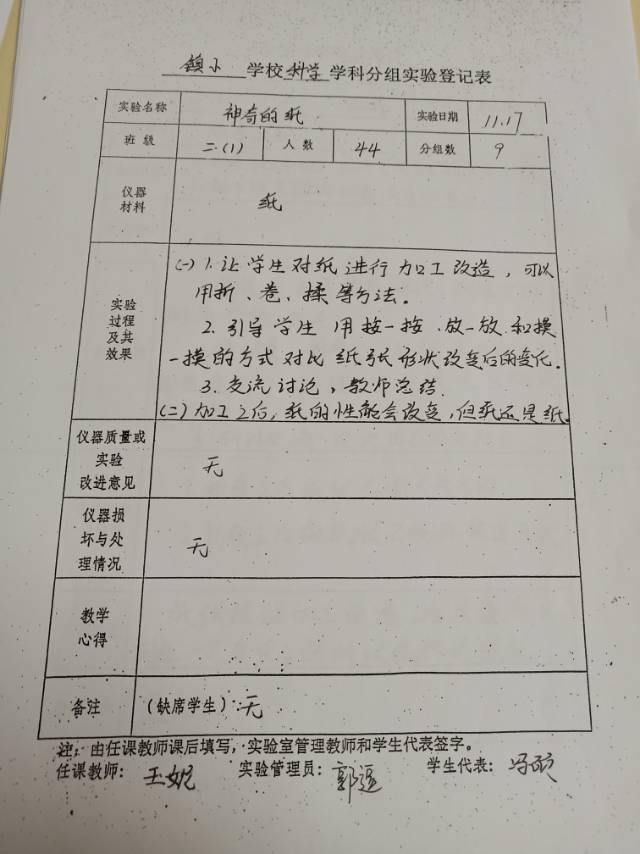 镇小学校科学学科分组实验登记表
实验名称 神奇的纸 实验日期 11.17
班级 二.(1) 人数 44 分组数 9
仪器
材料
纸
实验
过程
及其
效果
(一) 1.让学生对纸进行加工改造，可以
用折、卷、揉等方法。
2.引导学生用按一按、放一放和摸
一摸的方式对比纸张形状改变后的变化.
3.交流讨论，教师总结.
(二)加工之后，纸的性能会改变，但纸还是纸.
仪器质量或
实验
改进意见
无
仪器损
坏与处
理情况
无
教学
心得
备注 (缺席学生):无
注：由任课教师课后填写，实验室管理教师和学生代表签字。
任课教师：王妮 实验管理员：郭 学生代表：冯